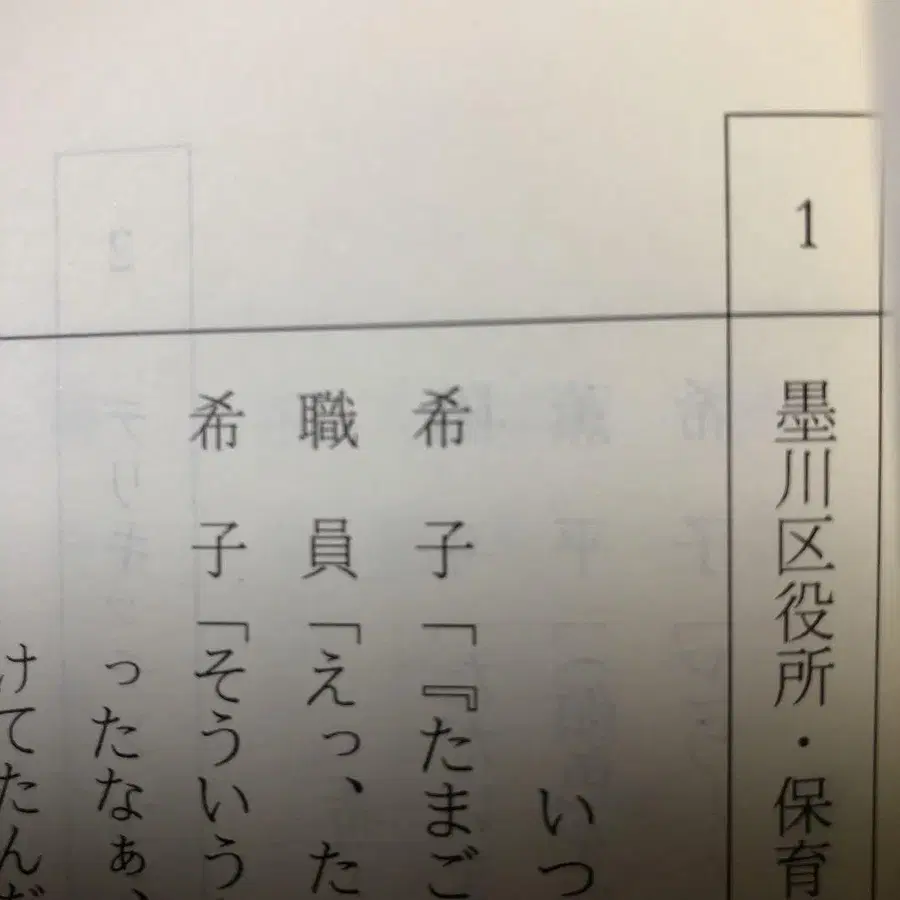 1
墨川区役所・保育
いつ
希子「『たまご
職員「えっ、た
希子「そういう
ったなぁ、
けてたんだ